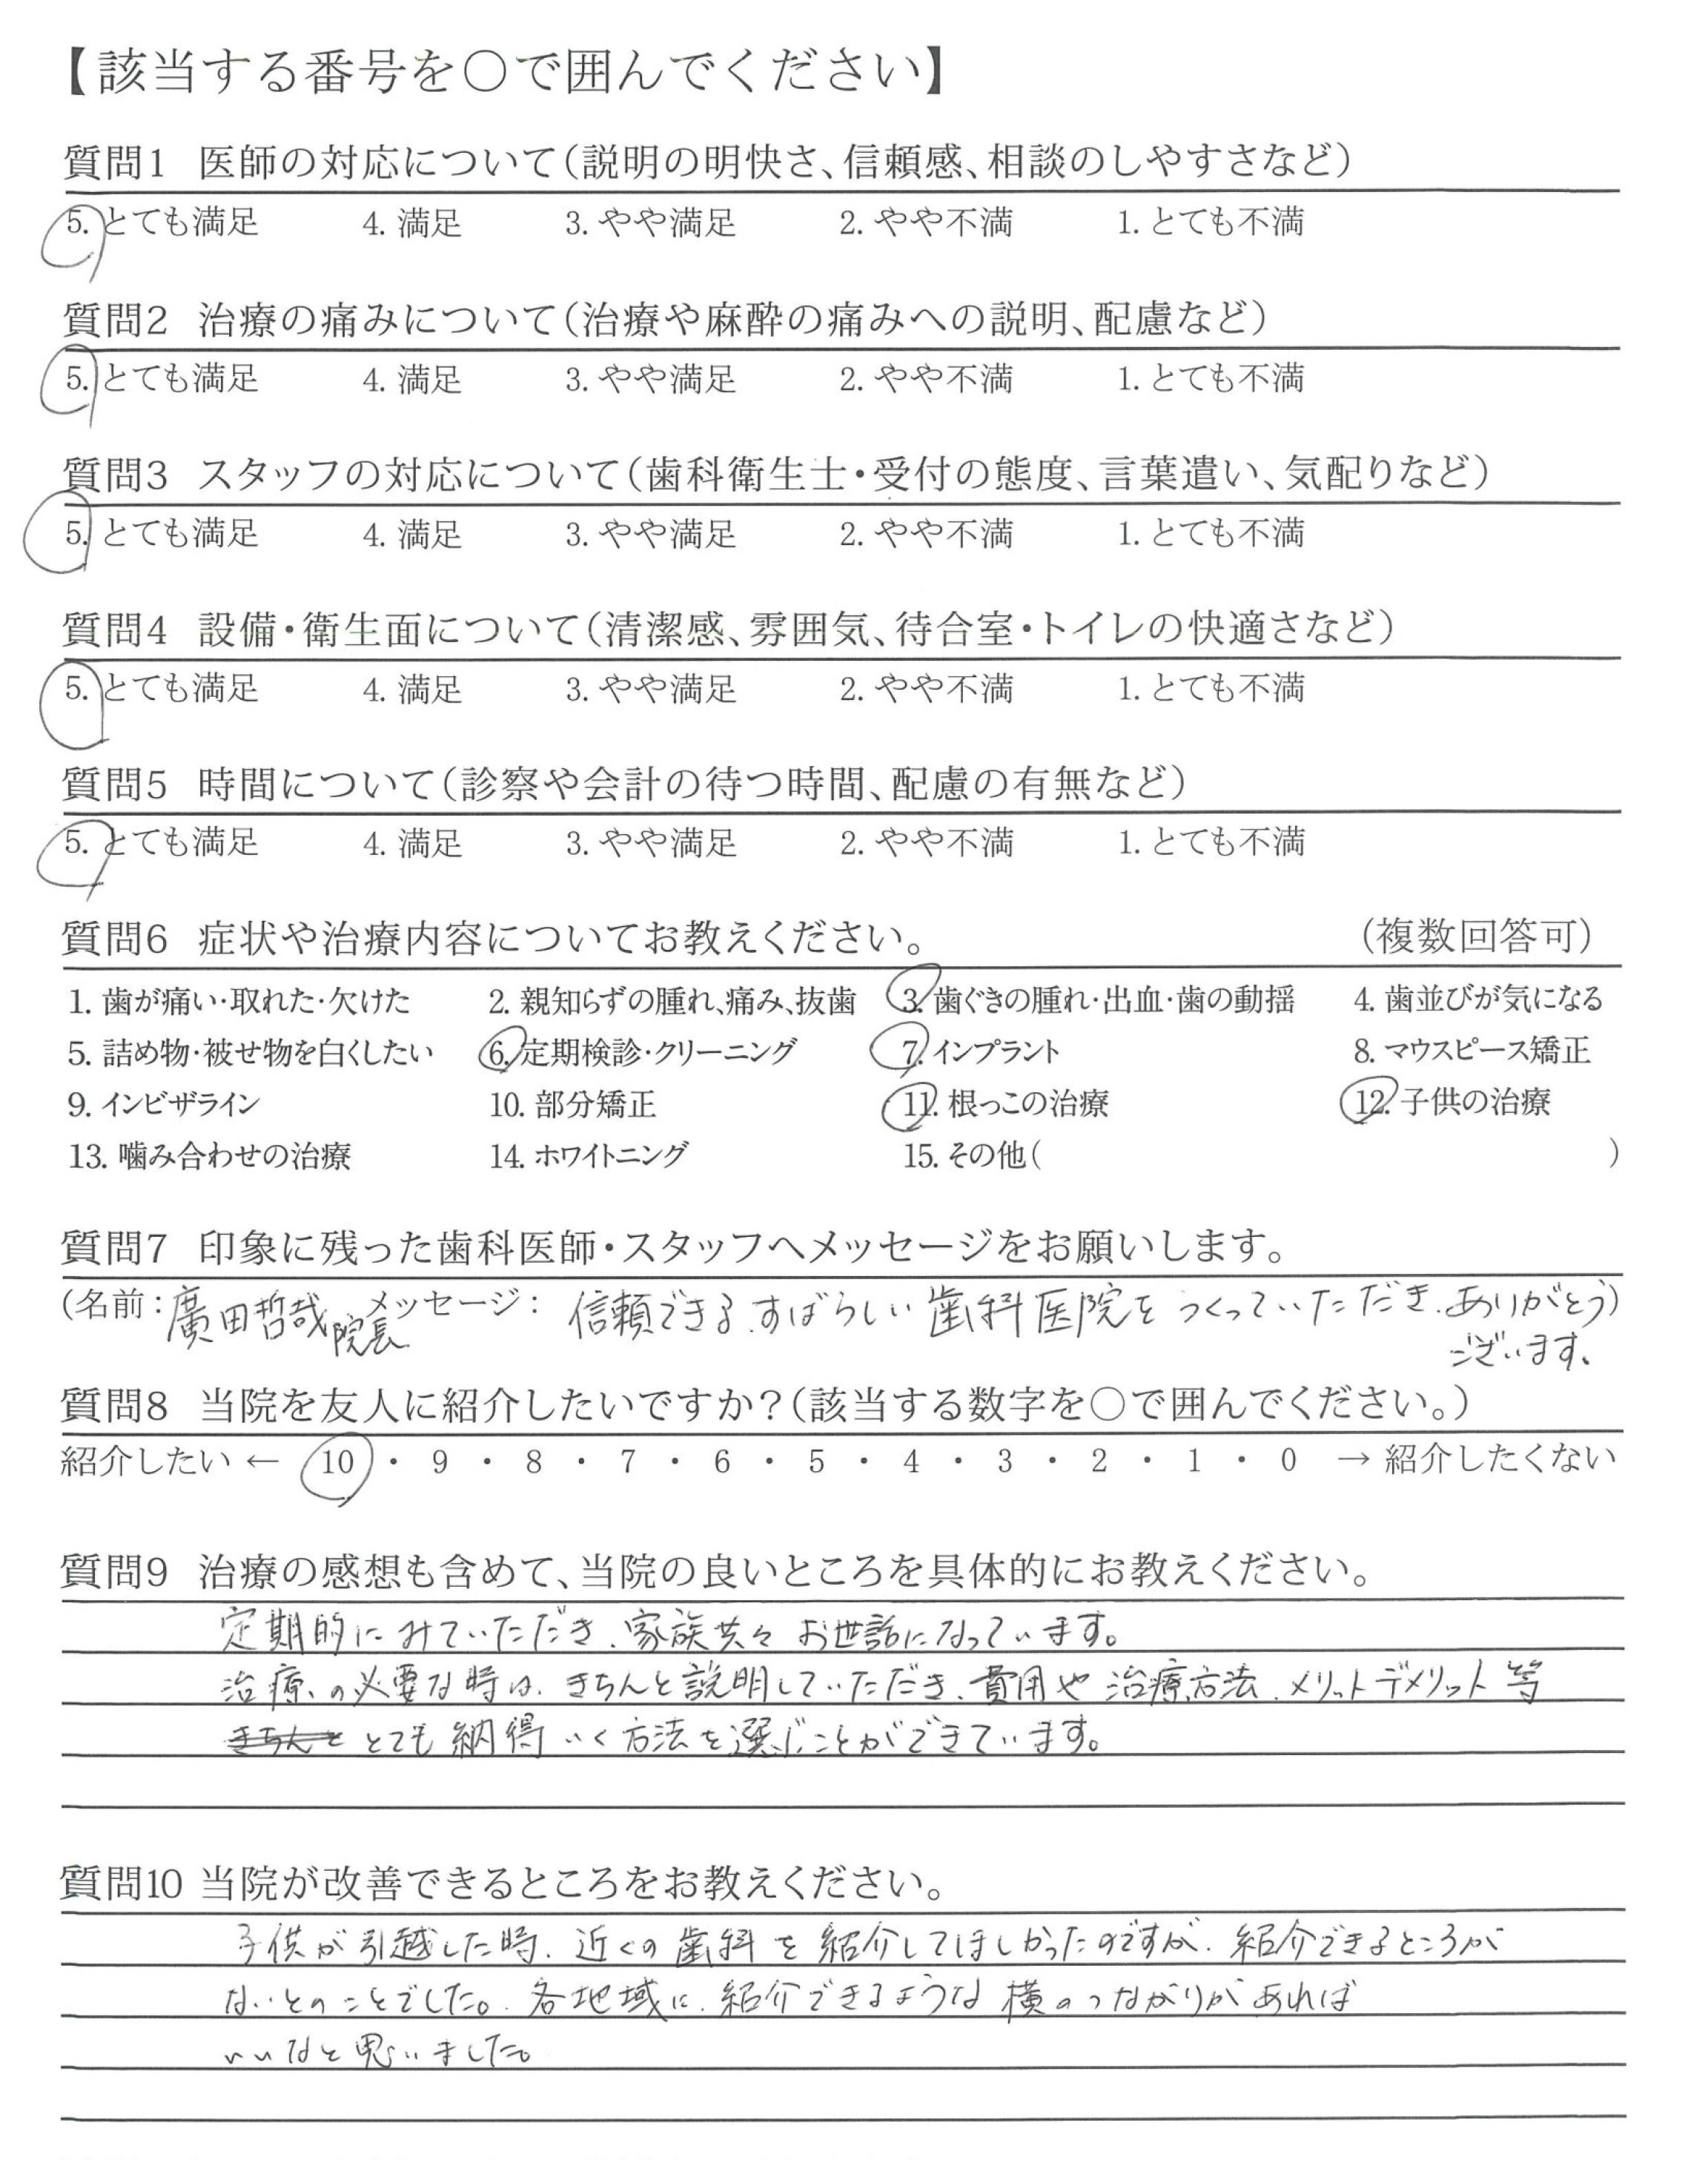 【該当する番号を〇で囲んでください】
質問1 医師の対応について(説明の明快さ、信頼感、相談のしやすさなど)
5. とても満足 4. 満足 3. やや満足 2. やや不満 1. とても不満
質問2 治療の痛みについて(治療や麻酔の痛みへの説明、配慮など)
5. とても満足 4. 満足 3. やや満足 2. やや不満 1. とても不満
質問3 スタッフの対応について(歯科衛生士・受付の態度、言葉遣い、気配りなど)
5. とても満足 4. 満足 3. やや満足 2. やや不満 1. とても不満
質問4 設備・衛生面について(清潔感、雰囲気、待合室・トイレの快適さなど)
5. とても満足 4. 満足 3. やや満足 2. やや不満 1. とても不満
質問5 時間について(診察や会計の待つ時間、配慮の有無など)
5. とても満足 4. 満足 3. やや満足 2. やや不満 1. とても不満
質問6 症状や治療内容についてお教えください。 (複数回答可)
1. 歯が痛い・取れた・欠けた 2. 親知らずの腫れ、痛み、抜歯 3. 歯ぐきの腫れ・出血・歯の動揺 4. 歯並びが気になる
5. 詰め物・被せ物を白くしたい 6. 定期検診・クリーニング 7. インプラント 8. マウスピース矯正
9. インビザライン 10. 部分矯正 11. 根っこの治療 12. 子供の治療
13. 噛み合わせの治療 14. ホワイトニング 15. その他( )
質問7 印象に残った歯科医師・スタッフへメッセージをお願いします。
(名前: 廣田哲哉院長 メッセージ: 信頼できる、すばらしい歯科医院をつくっていただき、ありがとう)
ございます。
質問8 当院を友人に紹介したいですか?(該当する数字を〇で囲んでください。)
紹介したい ← 10 ・ 9 ・ 8 ・ 7 ・ 6 ・ 5 ・ 4 ・ 3 ・ 2 ・ 1 ・ 0 → 紹介したくない
質問9 治療の感想も含めて、当院の良いところを具体的にお教えください。
定期的にみていただき、家族共々お世話になっています。
治療の必要な時は、きちんと説明していただき、費用や治療方法、メリットデメリット等
きちんと とても納得いく方法を選ぶことができています。
質問10 当院が改善できるところをお教えください。
子供が引越した時、近くの歯科を紹介してほしかったのですが、紹介できるところが
ないとのことでした。各地域に、紹介できるような横のつながりがあれば
いいなと思いました。